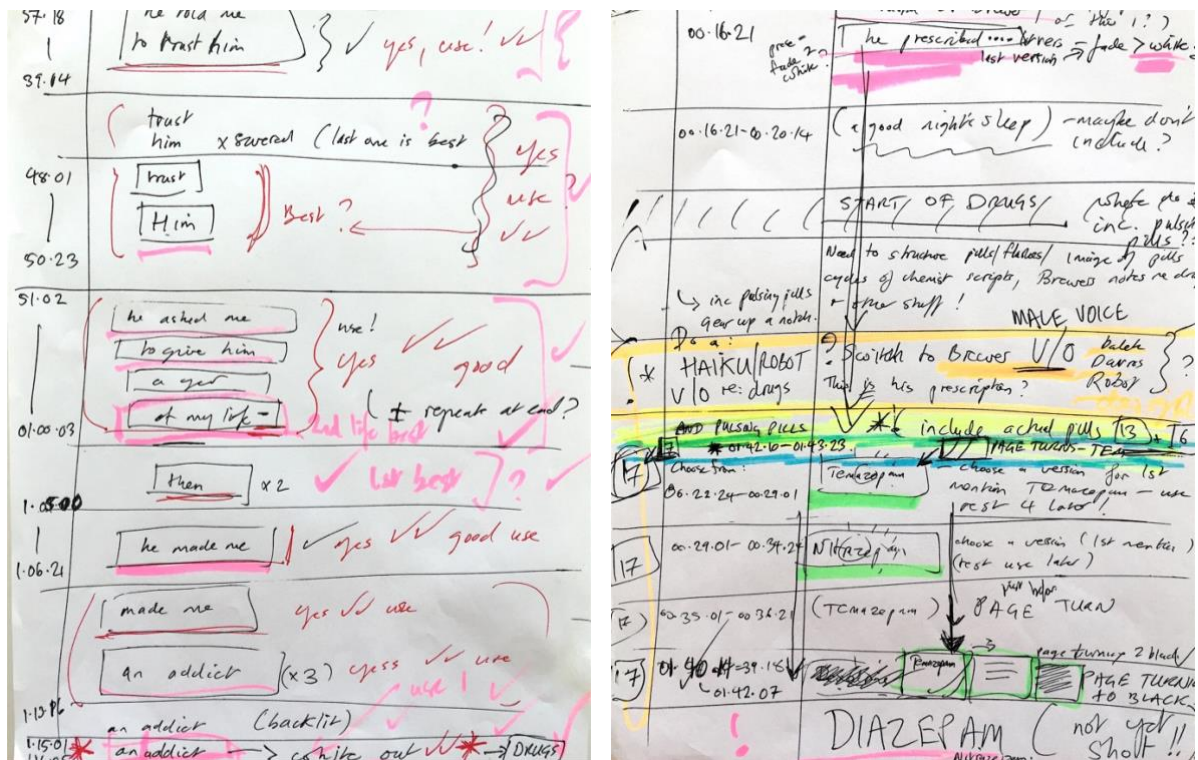 57.18
he told me
to trust him
yes, use!
39.04
trust
him x several (last one is best
?
yes
use
48.01
trust
Him
Best?
50.23
51.02
he asked me
to give him
a year
of my life
use!
yes good
(± repeat at end?
01.00.03
2nd life best
then x2
1st best
?
he made me
yes good use
1.06.21
made me
yes use
an addict (x3) yess use
use 1
an addict (backlit)
1.15.01
an addict → white out → DRUGS
00.16.21
he prescribed....
last version → fade > white
00.16.21-00.20.14
(a good night's sleep) - maybe don't
include?
START OF DRUGS
inc. pulsing
pills?
Need to structure pills/flashes/image of pills
cycles of chemist scripts, Brewers notes re
+ other stuff!
inc pulsing pills
Gear up a notch.
MALE VOICE
Do a:
* HAIKU/ROBOT
V/O re: drugs
? Switch to Brewer V/O
This is his prescription?
Robot
?
AND PULSING PILLS
* include actual pills 13 + 16
01.42.10-01.43.23
PAGE TURNS-TEM
17
Choose from:
Temazepam
- choose a version for 1st
mention Temazepam - use
rest 4 later!
06.22.24-00.29.01
17
00.29.01-00.34.24
Nitrazepam
choose a version (1st mention)
(rest use later)
17
00.35.01-00.36.21
(Temazepam)
PAGE TURN
17
39.18
01.42.07
Temazepam
page turning 2 black
PAGE TURNING
TO BLACK
!
DIAZEPAM (not yet
shot!!
Nitrazepam